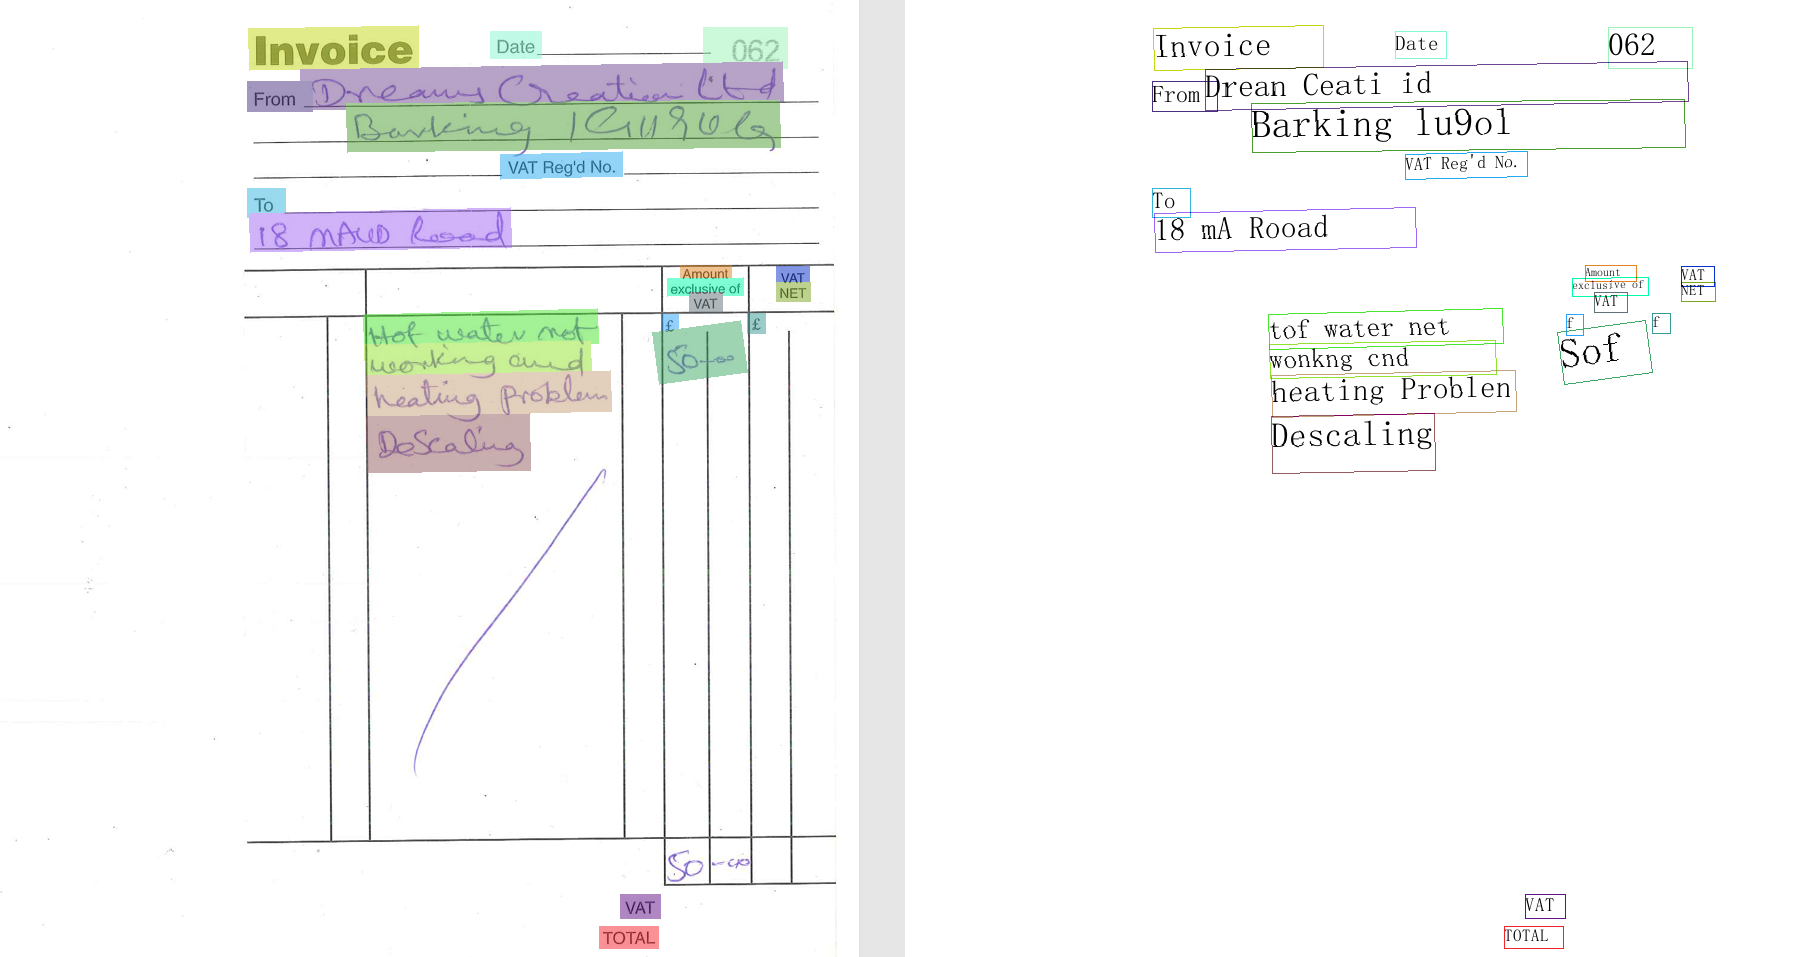 Invoice Date 062
From Dreams Creation Ltd
Barking
VAT Reg'd No.
To
18 MAUD Rooad
Amount exclusive of VAT
VAT NET
£ £
Hot water not
working and
heating problem
DeScaling
50-00
50-00
VAT
TOTAL
Invoice Date 062
From Drean Ceati id
Barking lu9ol
VAT Reg'd No.
To
18 mA Rooad
Amount exclusive of VAT
VAT NET
f f
tof water net
wonkng cnd
heating Problen
Descaling
Sof
VAT
TOTAL